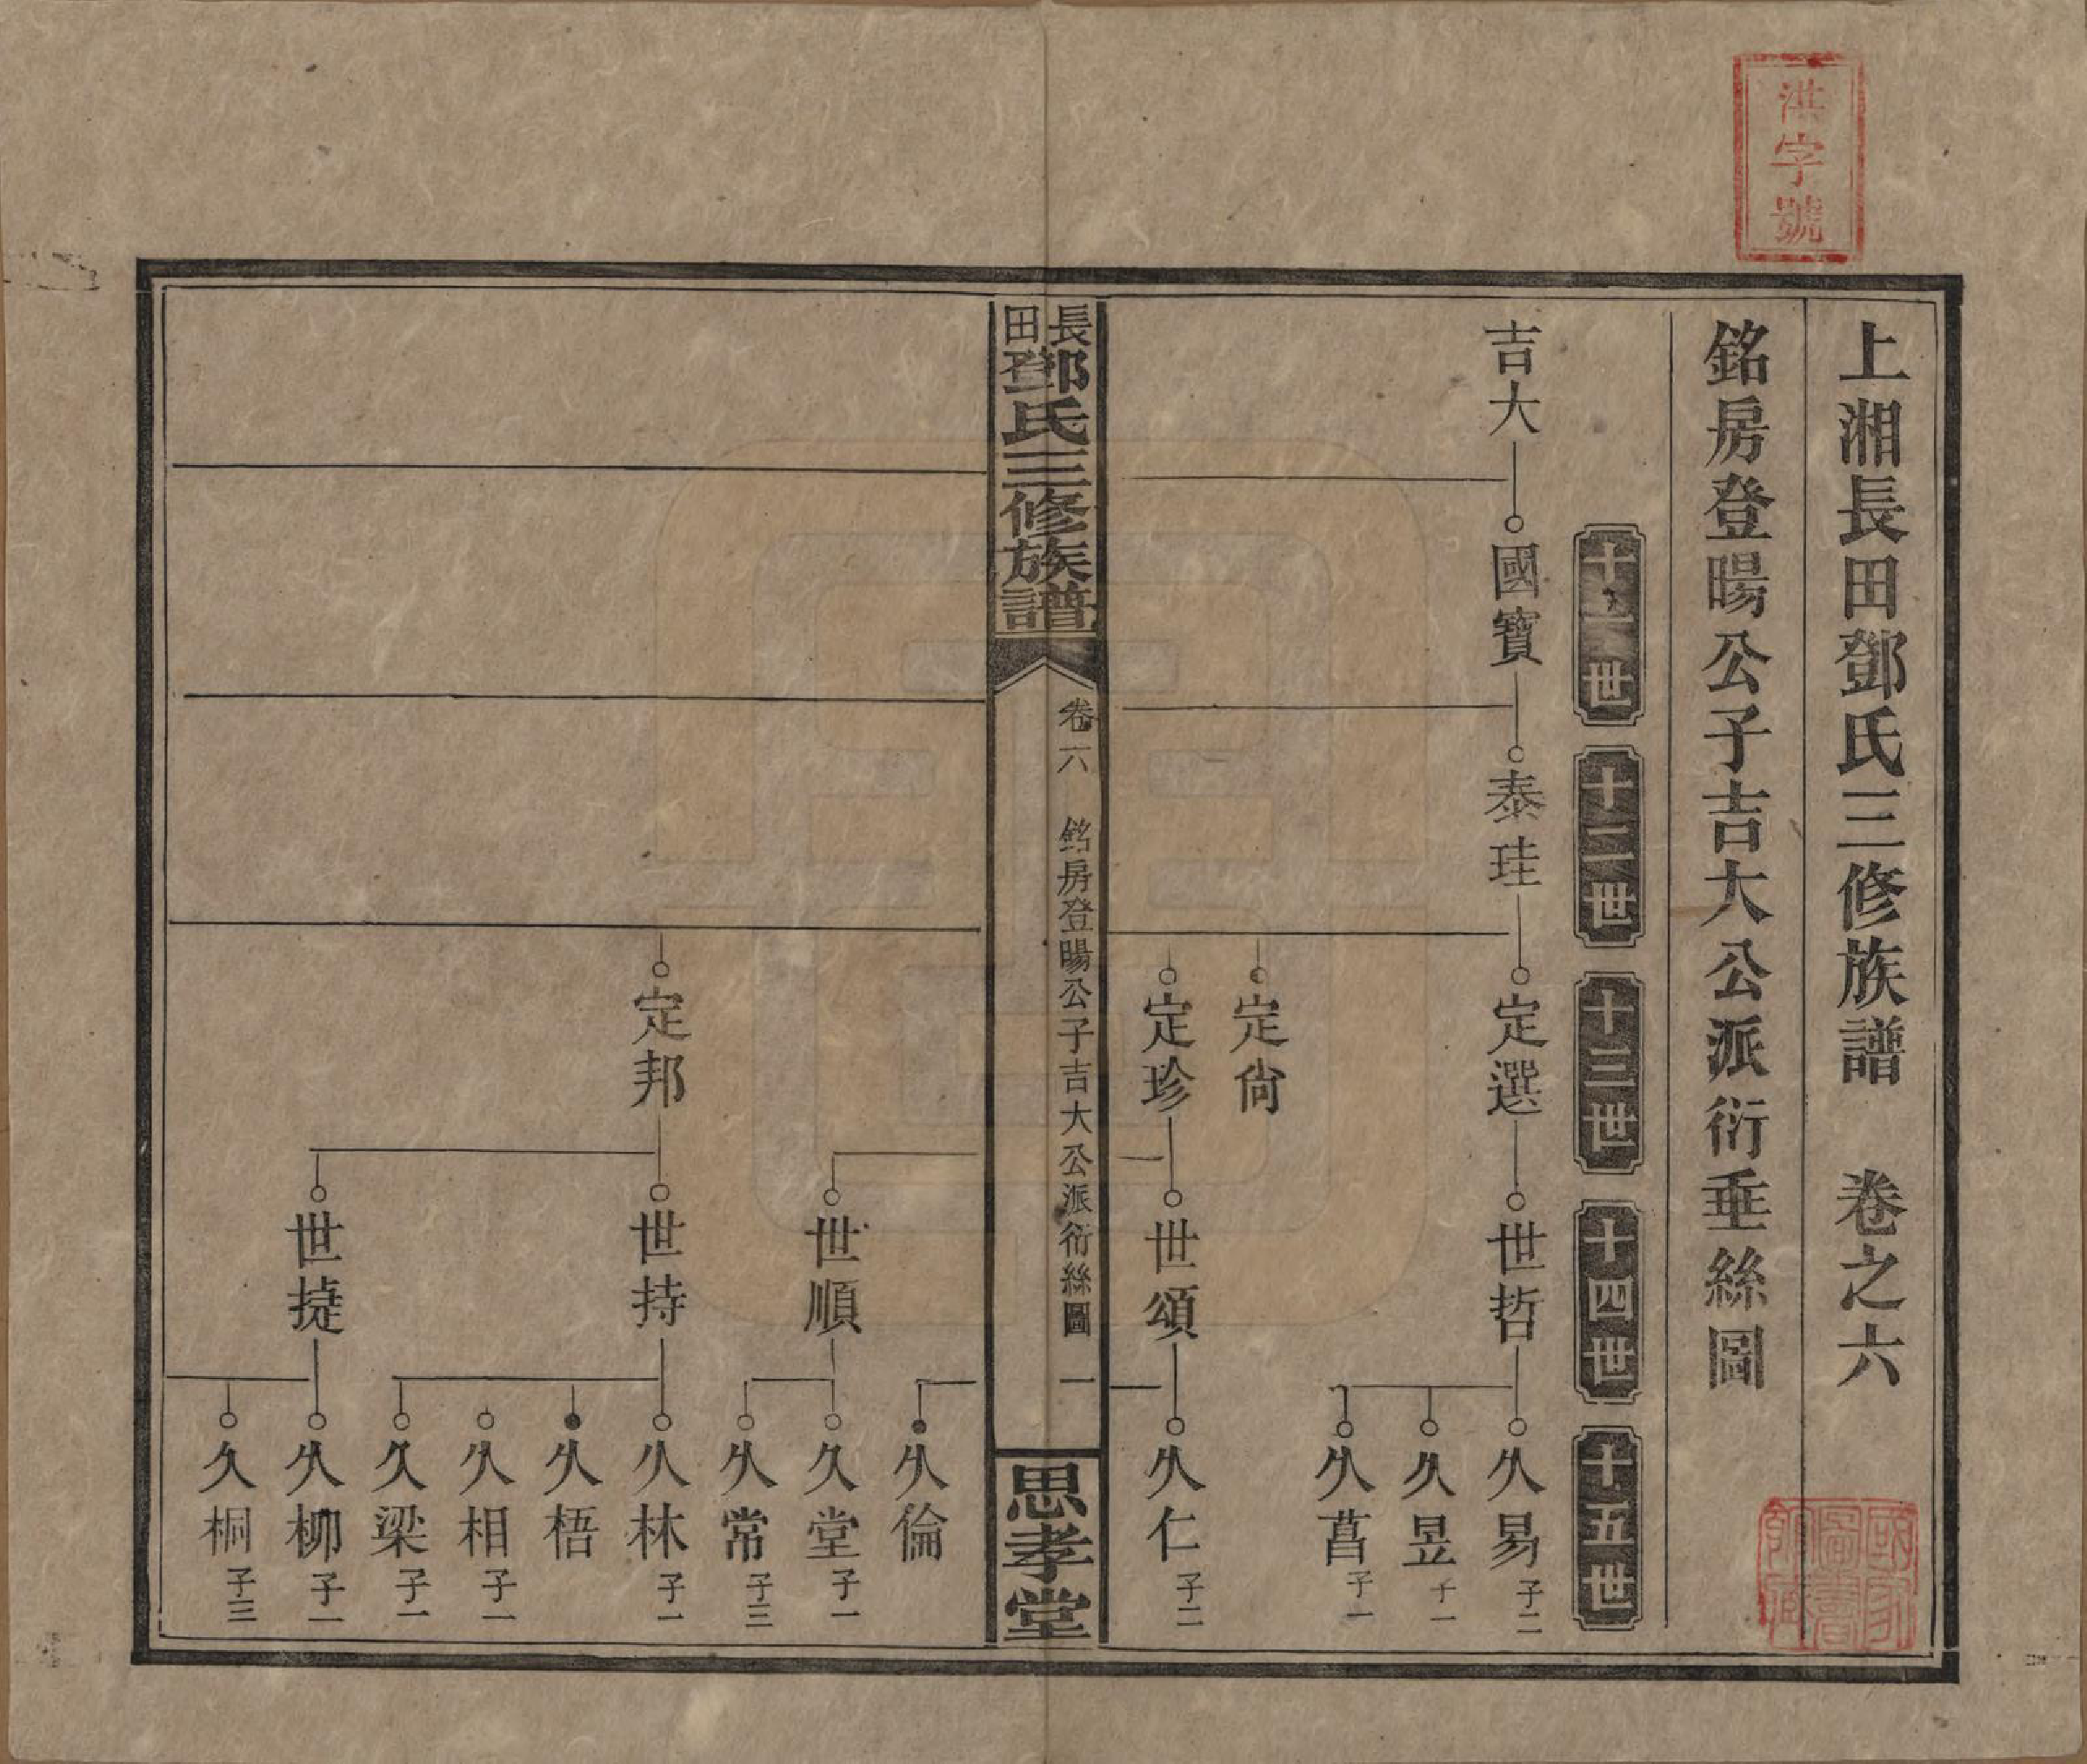 洪字號
上湘長田鄧氏三修族譜 卷之六
銘房登暘公子吉大公派衍垂絲圖
十一世
十二世
十三世
十四世
十五世
吉大
國寶
泰珪
定選
世哲
久易 子二
久昱 子一
久菖 子一
定尙
定珍
世頌
久仁 子二
長田鄧氏三修族譜
卷六 銘房登暘公子吉大公派衍絲圖 一
思孝堂
久倫
世順
久堂 子一
久常 子三
定邦
世持
久林 子一
久梧
久相 子一
久梁 子一
世㨗
久柳 子一
久桐 子三
國家圖書館藏